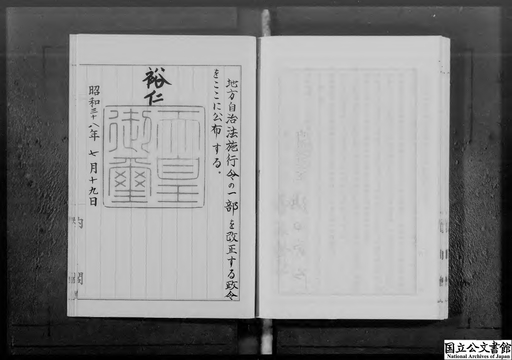 地方自治法施行令の一部を改正する政令
をここに公布する。
裕仁
天皇御璽
昭和三十八年七月十九日
内閣
国立公文書館
National Archives of Japan